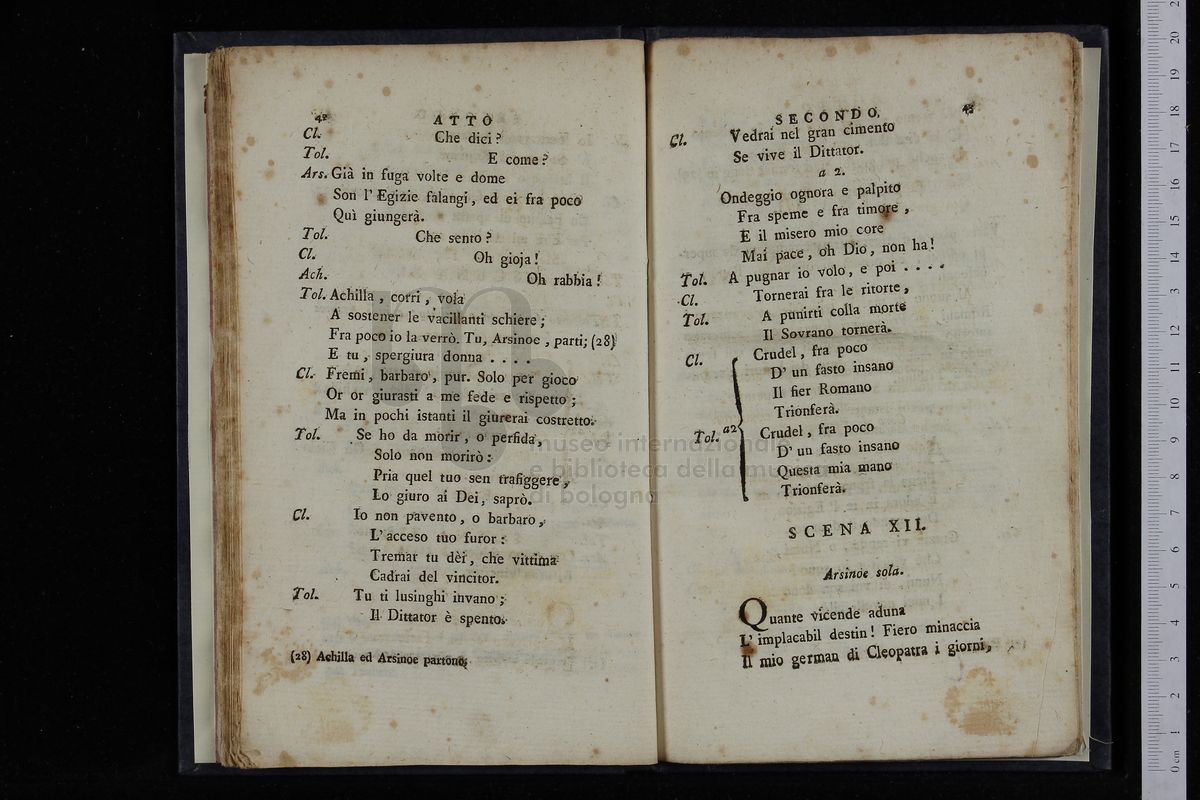 42
ATTO
Cl. Che dici?
Tol. E come?
Ars. Già in fuga volte e dome
Son l'Egizie falangi, ed ei fra poco
Quì giungerà.
Tol. Che sento?
Cl. Oh gioja!
Ach. Oh rabbia!
Tol. Achilla, corri, vola
A sostener le vacillanti schiere;
Fra poco io la verrò. Tu, Arsinoe, parti; (28)
E tu, spergiura donna ....
Cl. Fremi, barbaro, pur. Solo per gioco
Or or giurasti a me fede e rispetto;
Ma in pochi istanti il giurerai costretto.
Tol. Se ho da morir, o perfida,
Solo non morirò:
Pria quel tuo sen trafiggere,
Lo giuro ai Dei, saprò.
Cl. Io non pavento, o barbaro,
L'acceso tuo furor:
Tremar tu dèi, che vittima
Cadrai del vincitor.
Tol. Tu ti lusinghi invano;
Il Dittator è spento.
(28) Achilla ed Arsinoe partono.
SECONDO.
43
Cl. Vedrai nel gran cimento
Se vive il Dittator.
a 2.
Ondeggio ognora e palpito
Fra speme e fra timore,
E il misero mio core
Mai pace, oh Dio, non ha!
Tol. A pugnar io volo, e poi ....
Cl. Tornerai fra le ritorte,
Tol. A punirti colla morte
Il Sovrano tornerà.
Cl. Crudel, fra poco
D'un fasto insano
Il fier Romano
Trionferà.
a2
Tol. Crudel, fra poco
D'un fasto insano
Questa mia mano
Trionferà.
SCENA XII.
Arsinoe sola.
Quante vicende aduna
L'implacabil destin! Fiero minaccia
Il mio german di Cleopatra i giorni,
museo internazionale
e biblioteca della mu
di bologna
0 cm 1 2 3 4 5 6 7 8 9 10 11 12 13 14 15 16 17 18 19 20 2